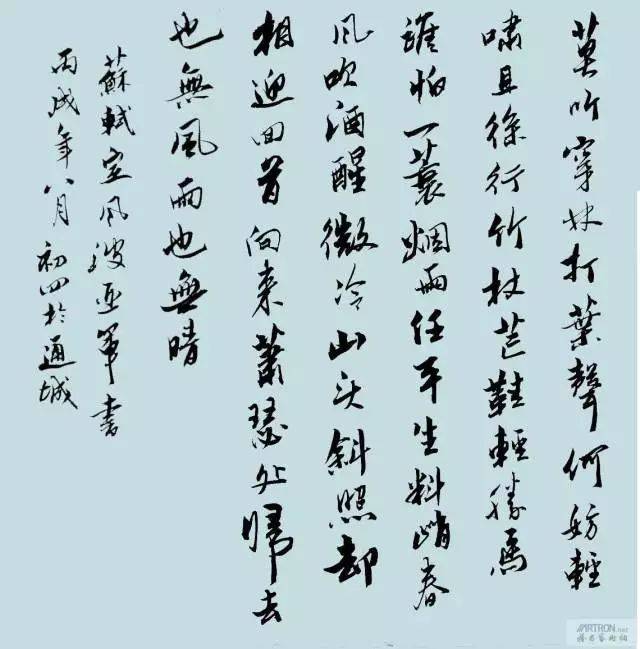 莫听穿林打葉聲何妨輕
嘯且徐行竹杖芒鞋輕勝馬
誰怕一蓑烟雨任平生料峭春
风吹酒醒微冷山头斜照却
相迎回首向来蕭瑟处歸去
也無風雨也無晴
蘇軾定风波亚軍書
丙戌年八月初四於通城
ARTRON.net
雅昌艺术网